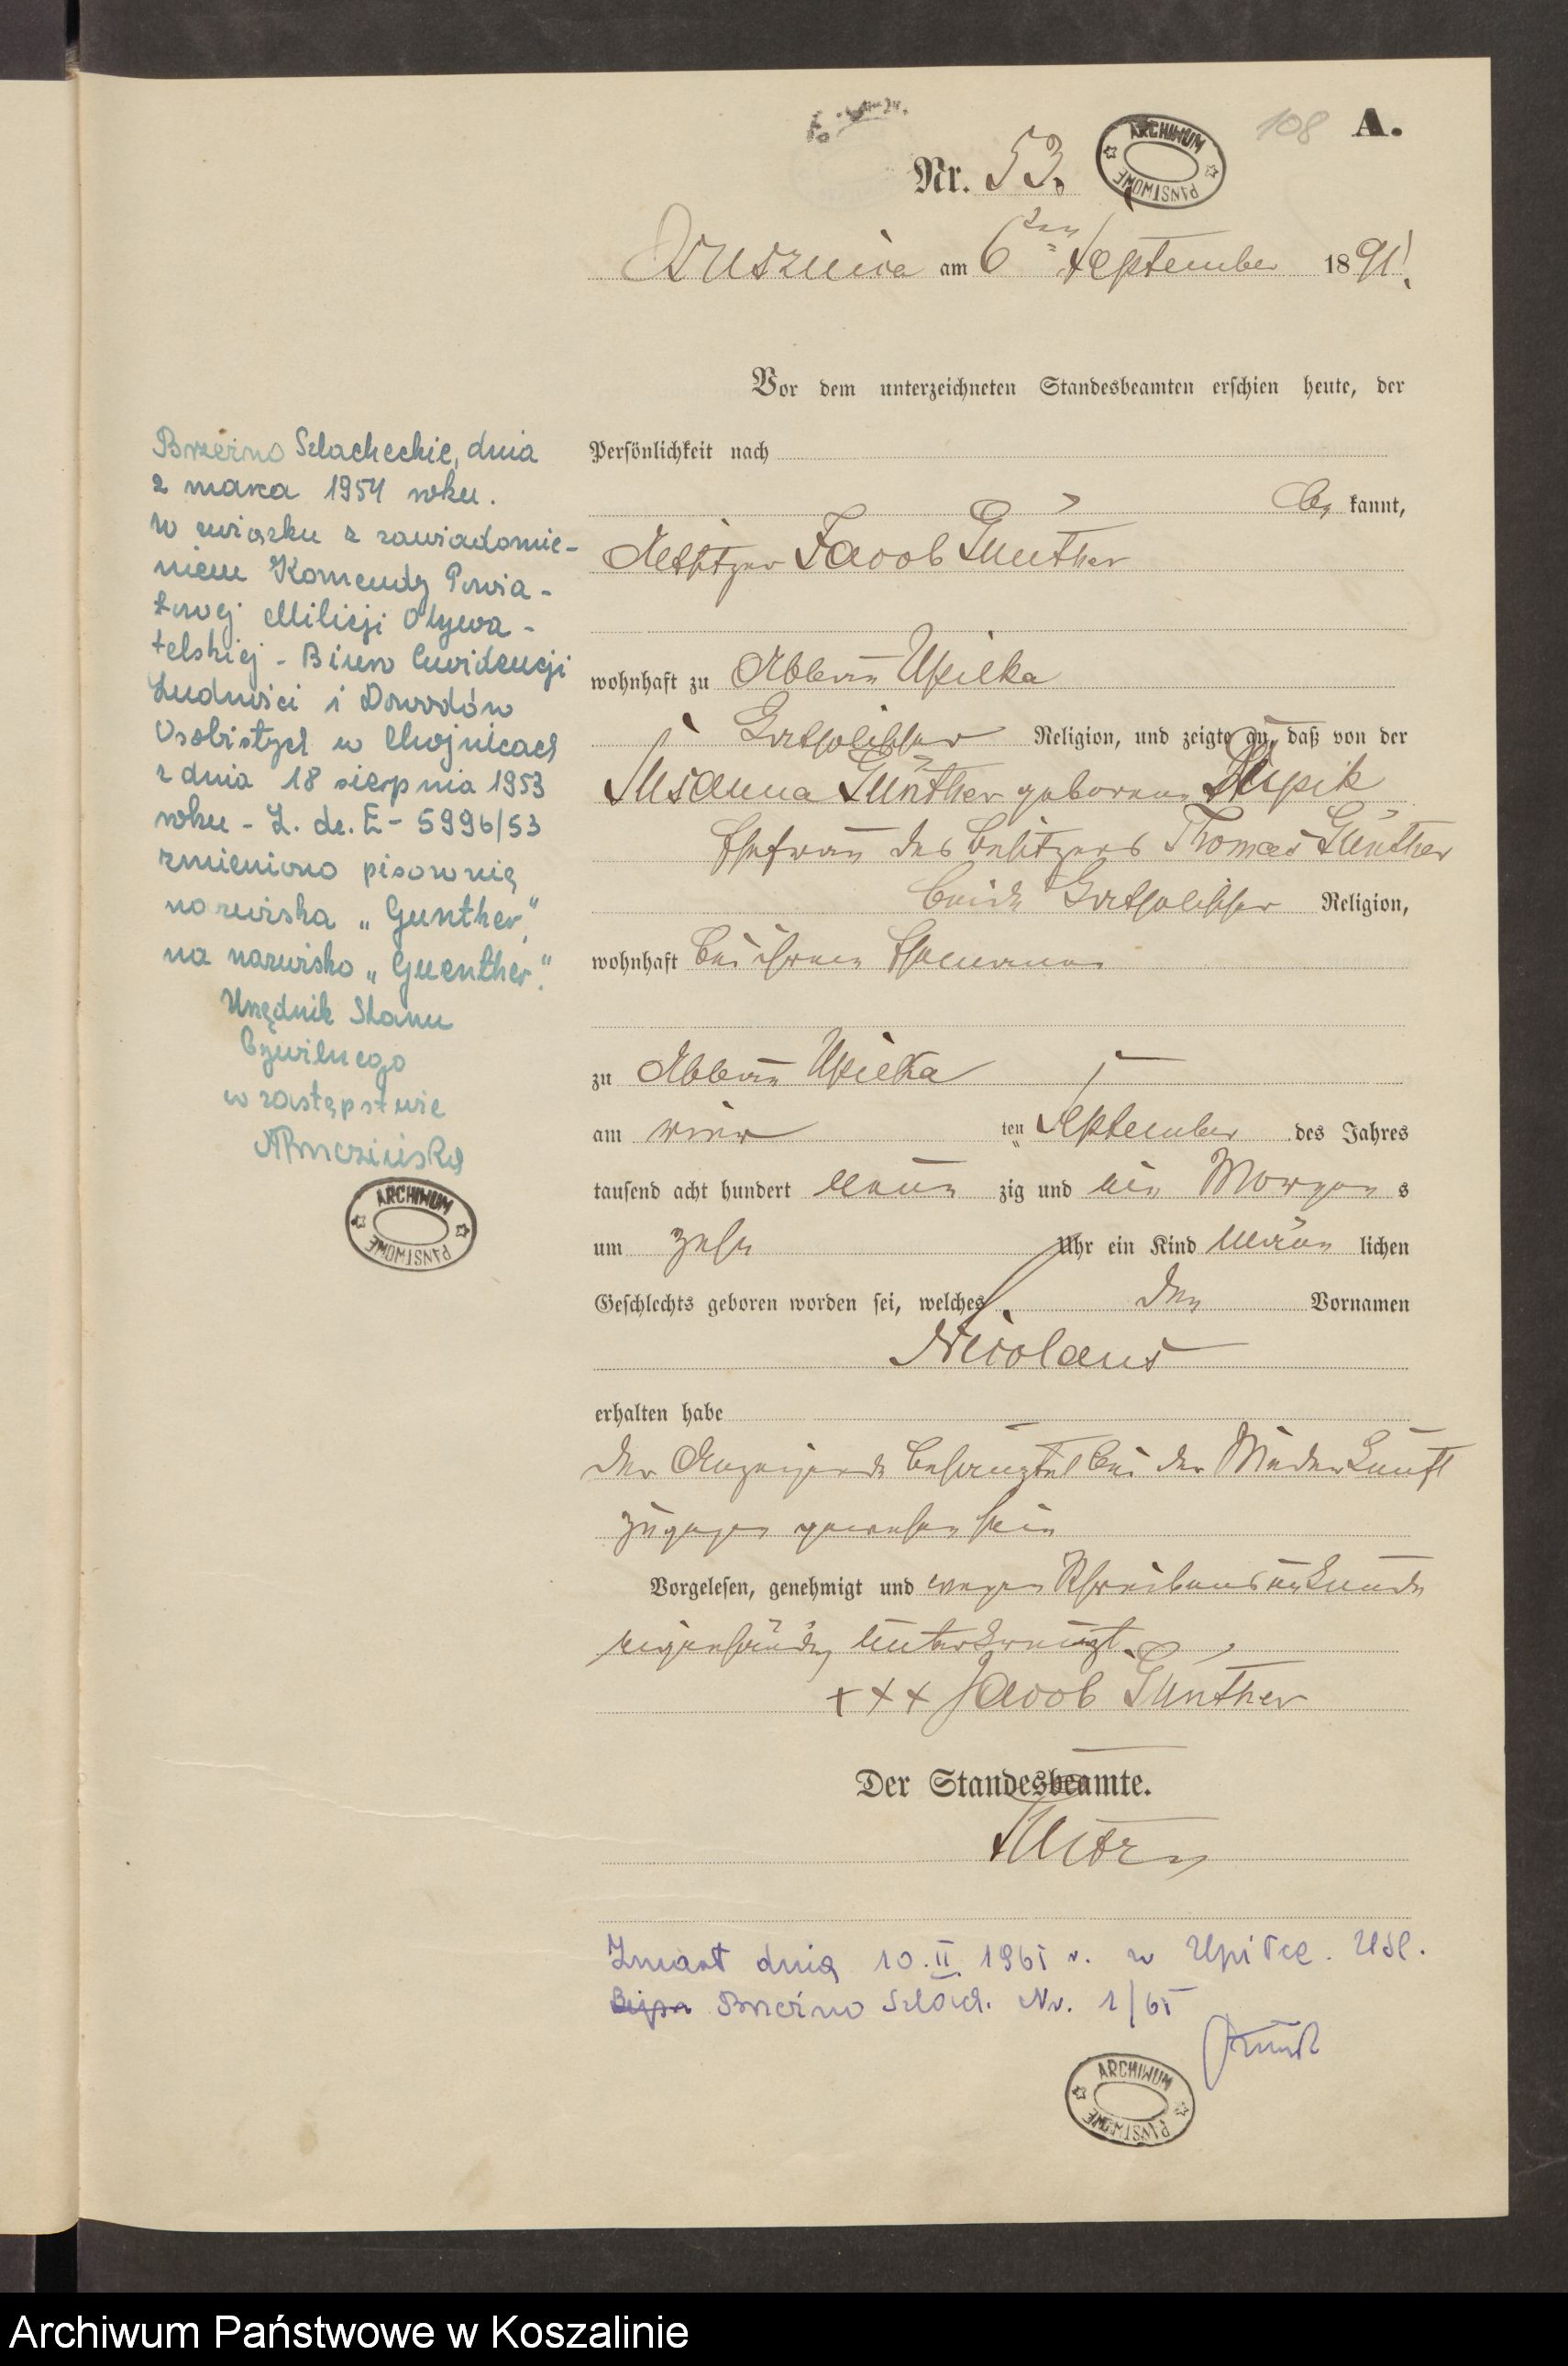 108 A.
Nr. 53.
ARCHIWUM PAŃSTWOWE
am 6ten September 1891.
Vor dem unterzeichneten Standesbeamten erschien heute, der
Persönlichkeit nach
be kannt,
Altsitzer Jacob Günther
wohnhaft zu Abbau Upilka
katholischer Religion, und zeigte an, daß von der
Susanna Günther geborene
Ehefrau des Besitzers Thomas Günther
beide katholischer Religion,
wohnhaft bei ihrem Ehemanne
zu Abbau Upilka
am vier ten September des Jahres
tausend acht hundert neun zig und ein Morgens
um zehn Uhr ein Kind männ lichen
Geschlechts geboren worden sei, welches den Vornamen
Nicolaus
erhalten habe
der Anzeigende behauptet bei der Niederkunft
zugegen gewesen sein
Vorgelesen, genehmigt und wegen Schreibensunkunde
eigenhändig unterkreuzt.
+++ Jacob Günther
Der Standesbeamte.
Zmarł dnia 10.II.1965 r. w Upiłce. USC.
Brzeźno Szlach. Nr. 1/65
ARCHIWUM PAŃSTWOWE
Brzeźno Szlacheckie, dnia
2 marca 1954 roku.
W związku z zawiadomie-
niem Komendy Powia-
towej Milicji Obywa-
telskiej - Biuro Ewidencji
Ludności i Dowodów
Osobistych w Chojnicach
z dnia 18 sierpnia 1953
roku - L. dz. E - 5996/53
zmieniono pisownię
nazwiska „Gunther"
na nazwisko „Guenther".
Urzędnik Stanu
Cywilnego
w zastępstwie
ARCHIWUM PAŃSTWOWE
Archiwum Państwowe w Koszalinie